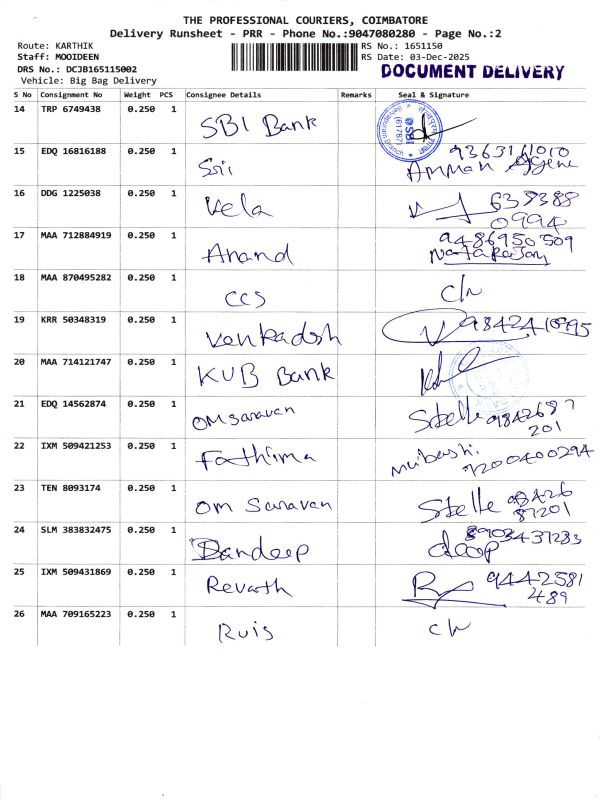 THE PROFESSIONAL COURIERS, COIMBATORE
Delivery Runsheet - PRR - Phone No.:9047080280 - Page No.:2
Route: KARTHIK
Staff: MOOIDEEN
DRS No.: DCJB165115002
Vehicle: Big Bag Delivery
RS No.: 1651150
RS Date: 03-Dec-2025
DOCUMENT DELIVERY
S No Consignment No Weight PCS Consignee Details Remarks Seal & Signature
14 TRP 6749438 0.250 1 SBI Bank
15 EDQ 16816188 0.250 1 Sri 9363161010
Amman Agene
16 DDG 1225038 0.250 1 Vela 639388
0994
17 MAA 712884919 0.250 1 Anand 9486950509
Natarajan
18 MAA 870495282 0.250 1 CCS
19 KRR 50348319 0.250 1 Venkadesh
20 MAA 714121747 0.250 1 KVB Bank
21 EDQ 14562874 0.250 1 OM Saravan Stelle 9842687
201
22 IXM 509421253 0.250 1 Fathima Mubashi
9200400294
23 TEN 8093174 0.250 1 Om Saravan Stelle 98426
87201
24 SLM 383832475 0.250 1 Sandeep 8903437283
deep
25 IXM 509431869 0.250 1 Revath 9442581
489
26 MAA 709165223 0.250 1 Ruis